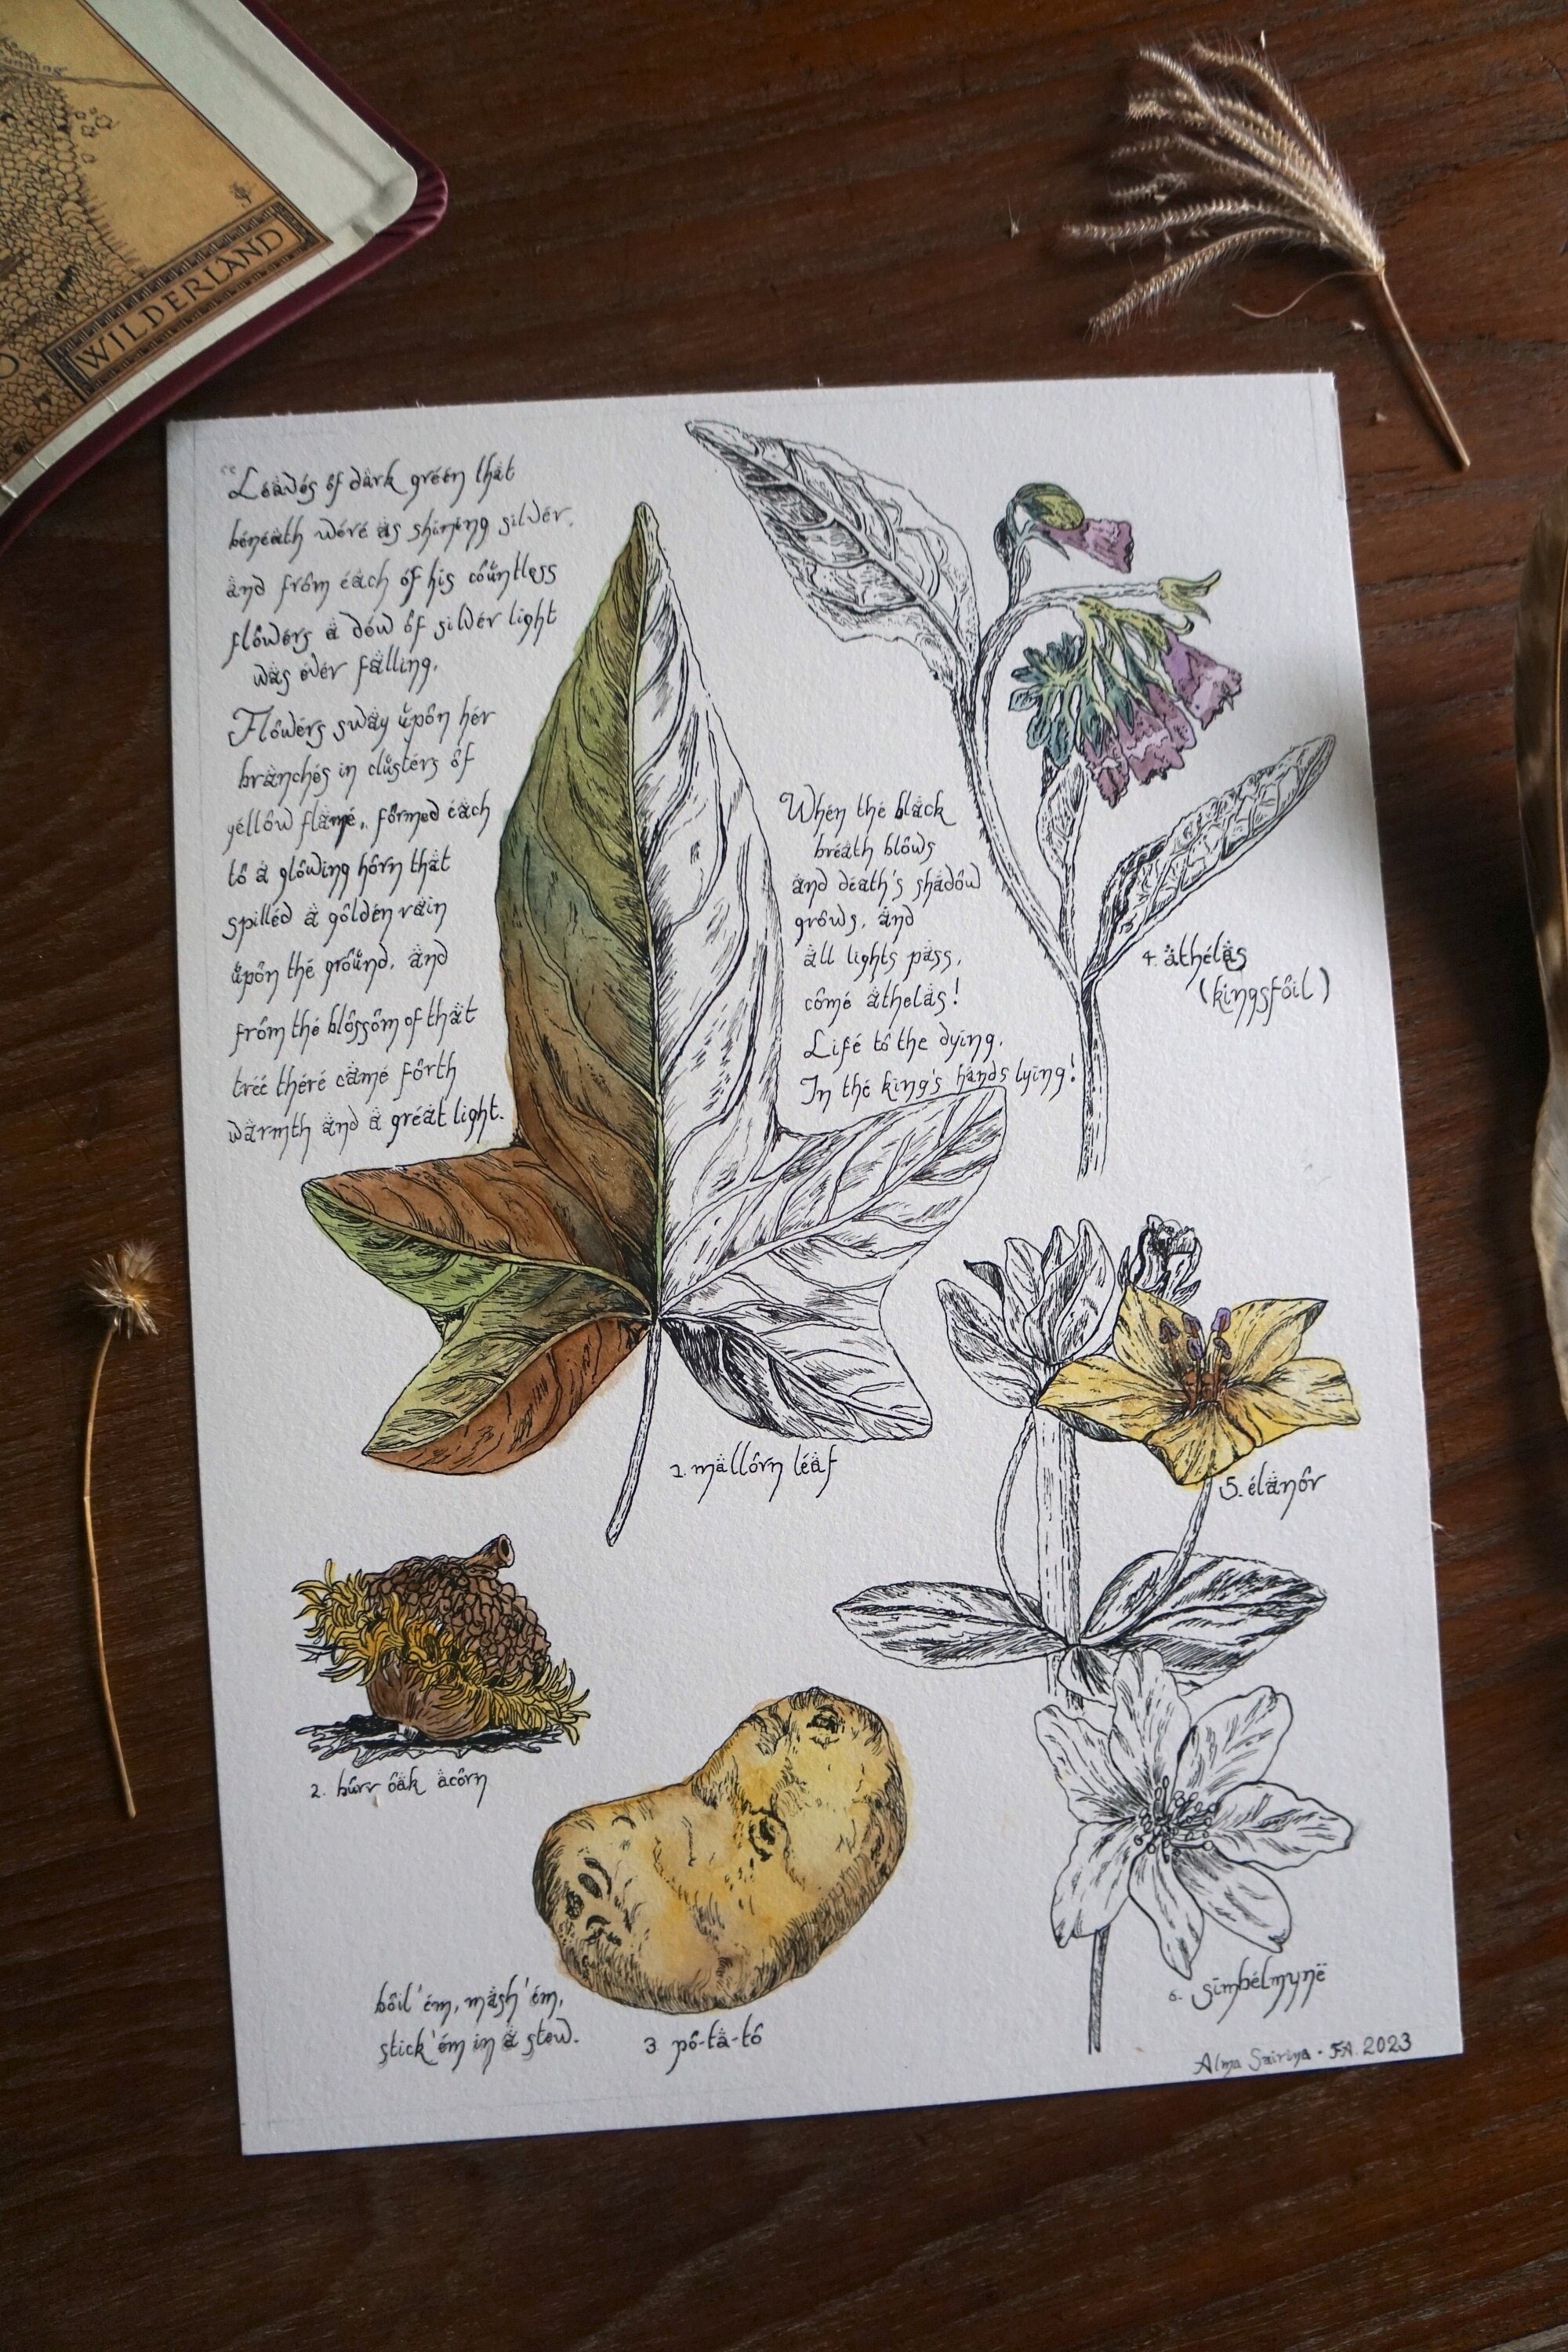 WILDERLAND
“Leaves of dark green that
beneath were as shining silver,
and from each of his countless
flowers a dew of silver light
was ever falling.
Flowers sway upon her
branches in clusters of
yellow flame, formed each
to a glowing horn that
spilled a golden rain
upon the ground, and
from the blossom of that
tree there came forth
warmth and a great light.
When the black
breath blows
and death's shadow
grows, and
all lights pass,
come athelas!
Life to the dying,
In the king's hands lying!
4. athelas
(kingsfoil)
1. mallorn leaf
5. elanor
2. burr oak acorn
boil 'em, mash 'em,
stick 'em in a stew.
3. po-ta-to
6. simbelmynë
Alma Sairina - FA. 2023